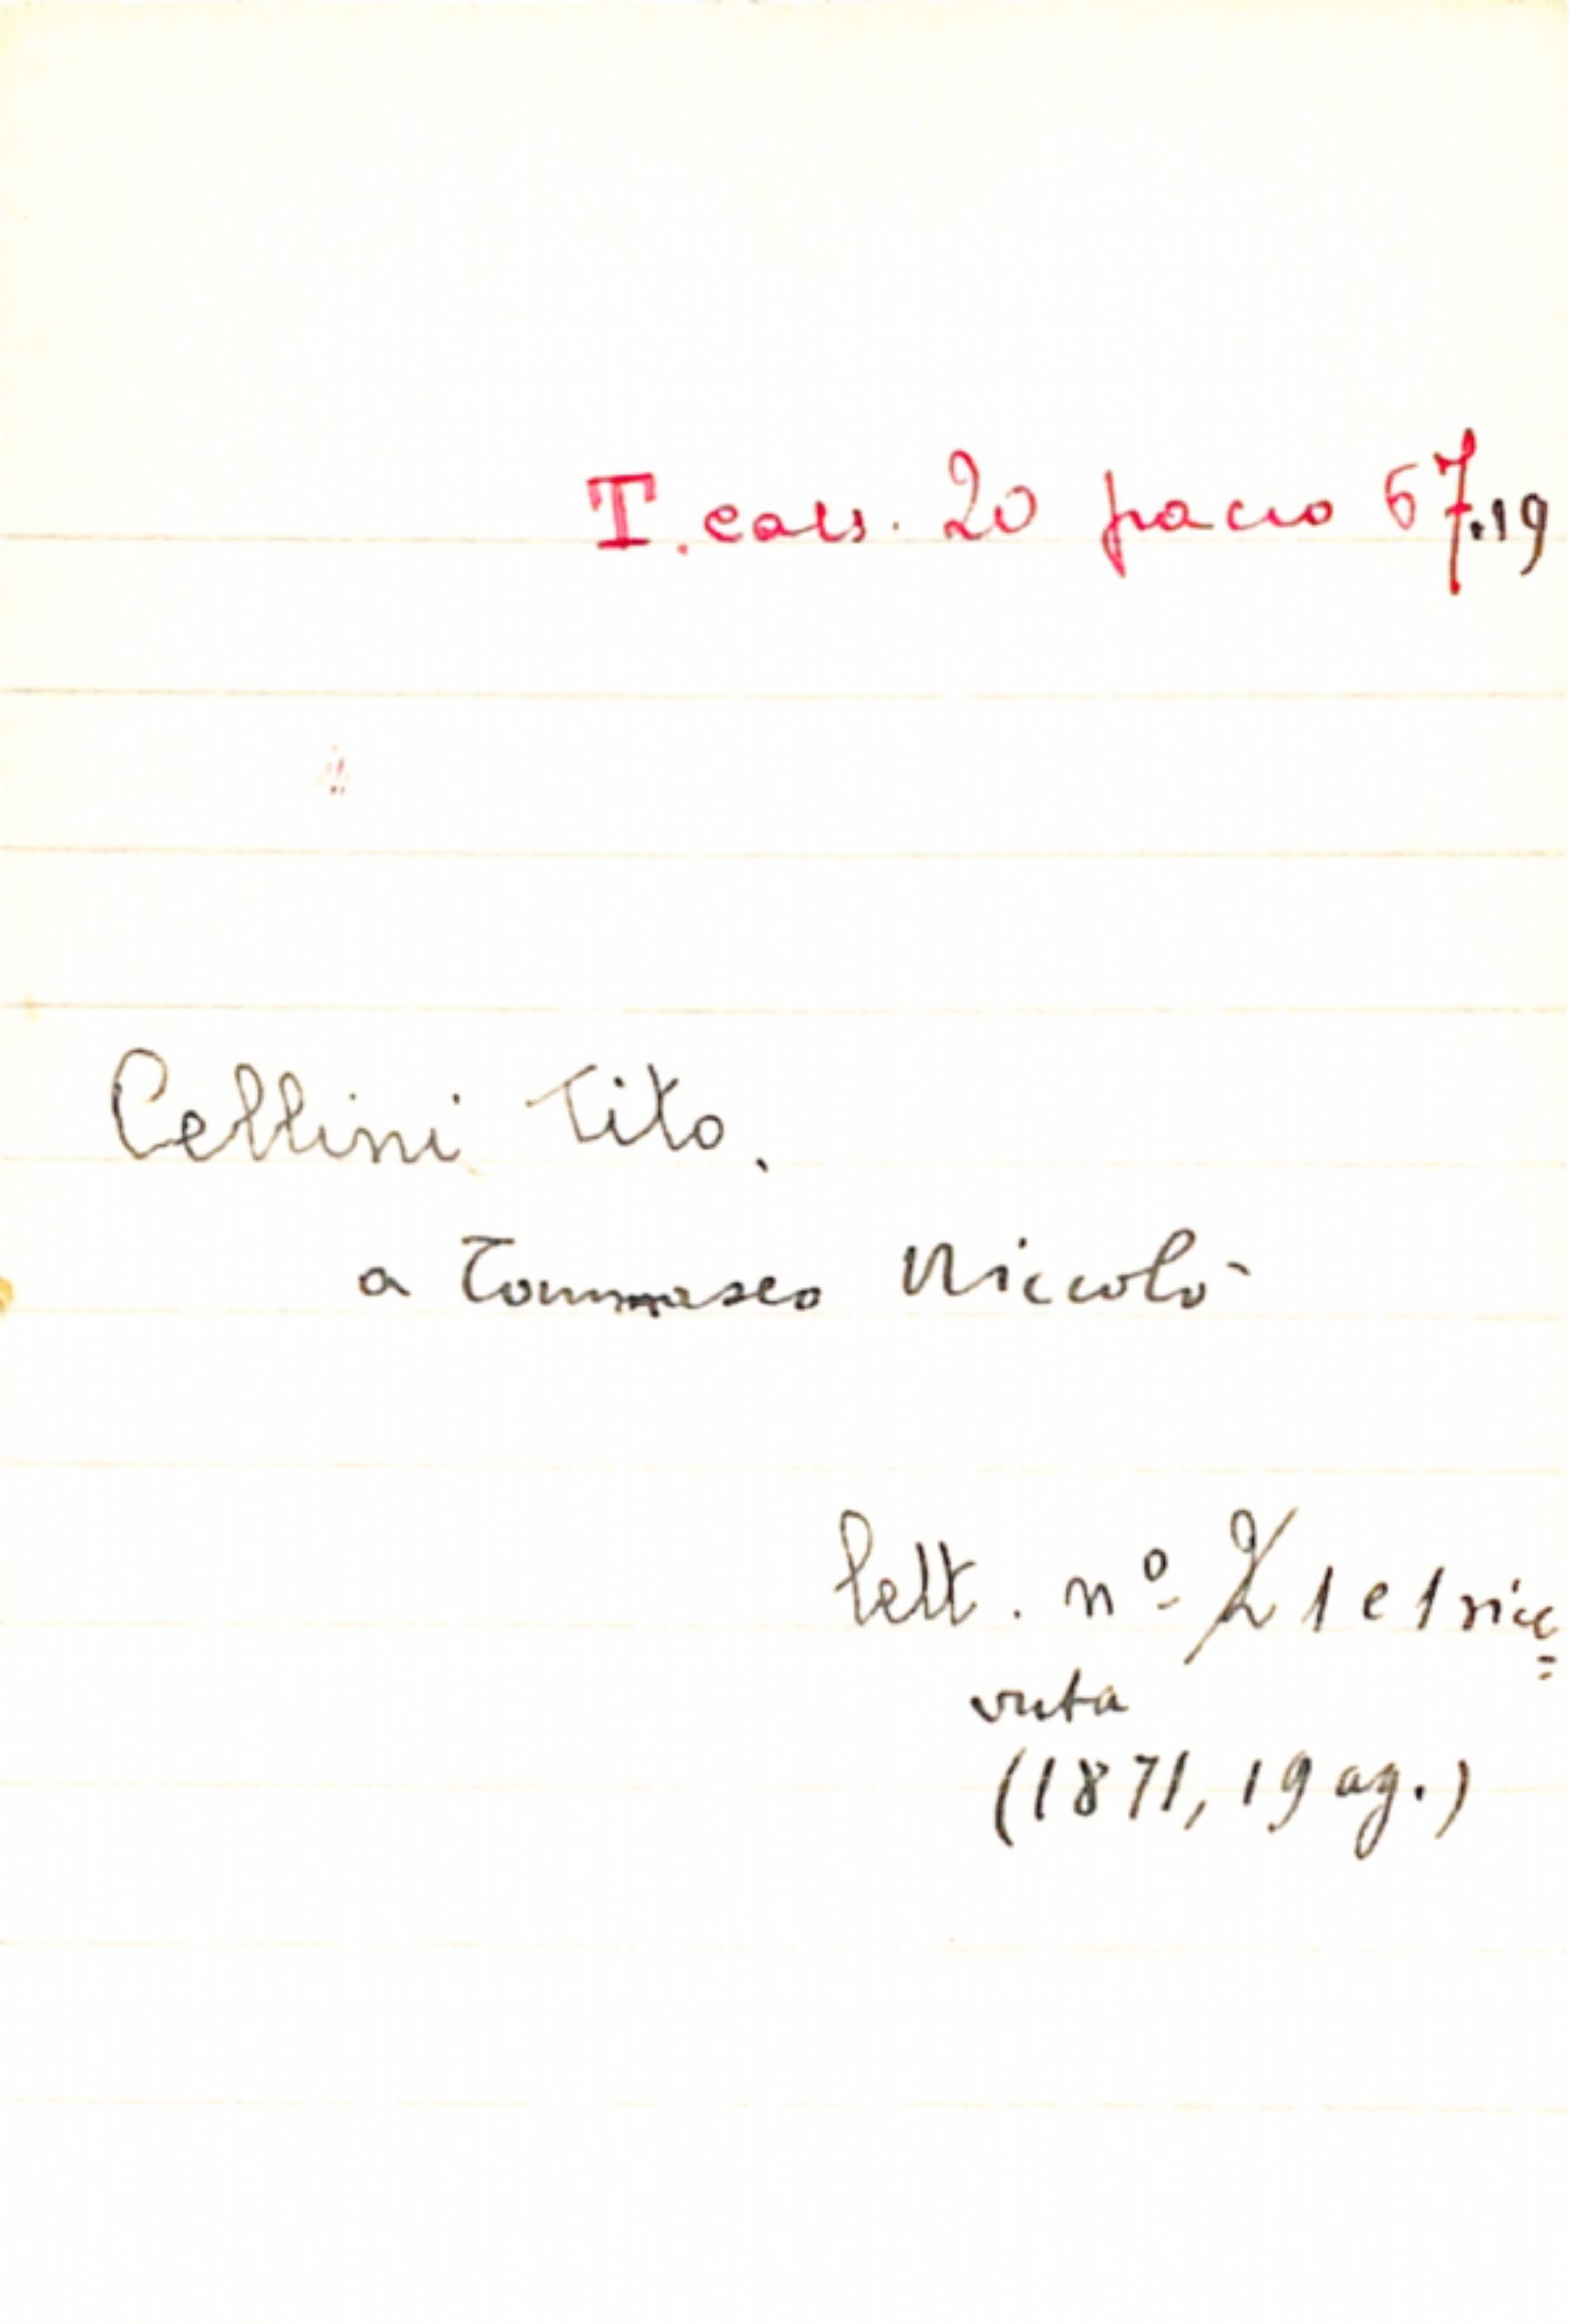 T. cass. 20 pacco 67.19
Cellini Tito.
a Tommaseo Niccolò
lett. nº 2 1 e 1 rice=
vuta
(1871, 19 ag.)